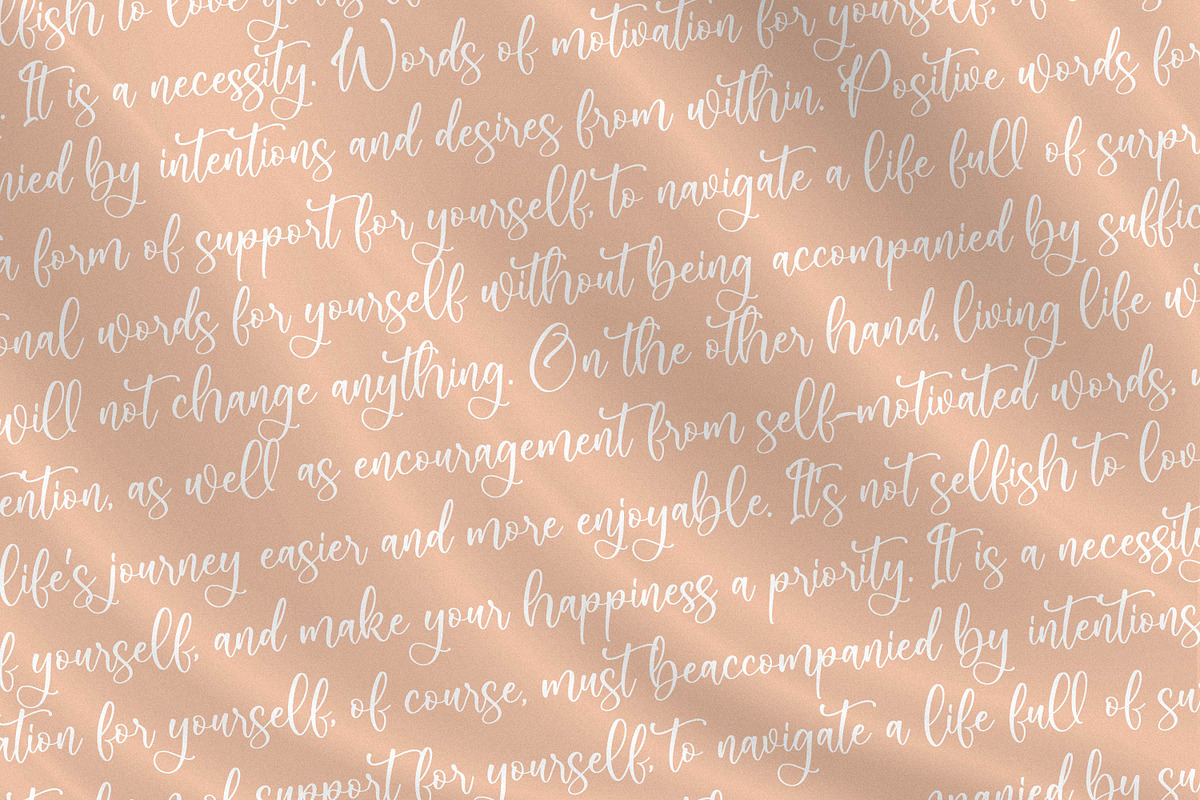 to love
It is a necessity. Words of motivation for yourself,
by intentions and desires from within. Positive words for
a form of support for yourself, to navigate a life full of
words for yourself without being accompanied by
will not change anything. On the other hand, living life
as well as encouragement from self-motivated words,
life's journey easier and more enjoyable. It's not selfish to
yourself, and make your happiness a priority. It is a necessity
for yourself, of course, must beaccompanied by intentions
of support for yourself, to navigate a life full of
by